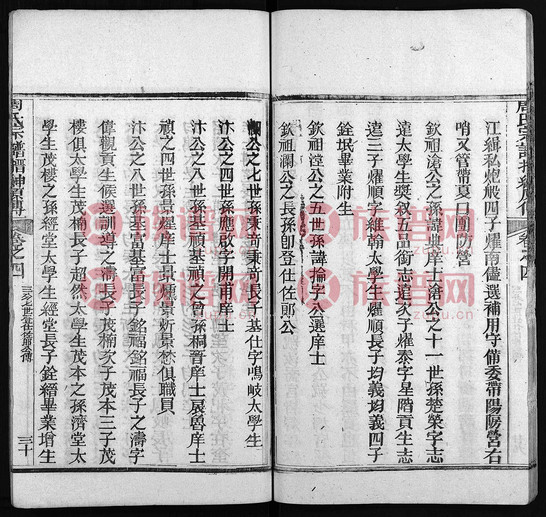 周氏宗譜
江緝私炮舨四子燿南儘選補用守備委帶陽防營右
哨又管帶夏口團防營
欽祖滄公之孫諱典庠士滄公之十一世孫楚榮字志
遠太學生獎敘五品銜志遠次子燿泰字星階貢生志
遠三子燿順字維翰太學生燿順長子均義均義四子
銓垊畢業附生
欽祖漟公之五世孫諱掄字公選庠士
欽祖瀾公之長孫卽登仕佐郎公
瀾公之七世孫東奇東奇長子基仕字鳴岐太學生
汴公之四世孫應啟字開甫庠士
汴公之八世孫基禎基禎之曾孫桐晉庠士
禎之四世孫景炘景愁俱職員
汴公之八世孫基富基富長子銘福銘福長子之濤字
偉觀貢生候選訓導之濤長子茂楠次子茂本三子茂
樓俱太學生茂楠長子超然太學生茂本之孫濟堂太
學生茂樓之孫經堂太學生經堂長子銓縉畢業增生
周氏宗譜
卷之四
三十